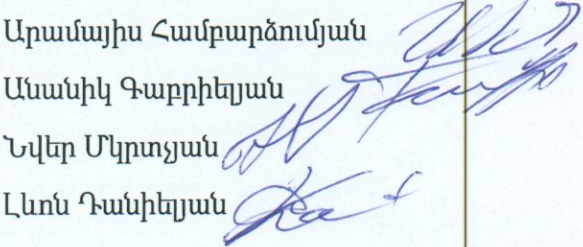 Արամայիս Համբարձումյան
Անանիկ Գաբրիելյան
Նվեր Մկրտչյան
Լևոն Դանիելյան